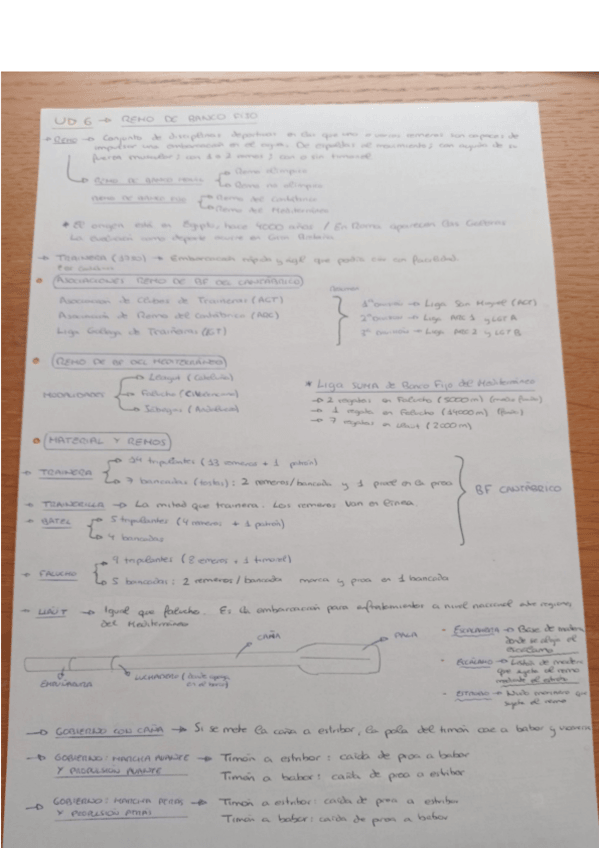 UD 6 → REMO DE BANCO FIJO
→ REMO → Conjunto de disciplinas deportivas en las que uno o varios remeros son capaces de
impulsar una embarcación en el agua. De espaldas al movimiento, con ayuda de su
fuerza muscular; con 1 o 2 remos; con o sin timonel
REMO DE BANCO MÓVIL → Remo olímpico
→ Remo no olímpico
REMO DE BANCO FIJO → Remo del Cantábrico
→ Remo del Mediterráneo
* El origen está en Egipto, hace 4000 años / En Roma aparecen las Galeras
La evolución como deporte ocurre en Gran Bretaña
→ TRAINERA → Embarcación rápida y ágil que podía con facilidad
ASOCIACIONES REMO DE BF DEL CANTÁBRICO
Asociación de Clubes de Traineras (ACT)
Asociación de Remo del Cantábrico (ARC)
Liga Gallega de Traineras (LGT)
1ª División → Liga San Miguel (ACT)
2ª División → Liga ARC 1 y LGT A
3ª División → Liga ARC 2 y LGT B
REMO DE BF DEL MEDITERRÁNEO
MODALIDADES → Llaagut (Cataluña)
→ Falucho (C. Valenciana)
→ Jábegas (Andalucía)
* LIGA SUMA de Banco Fijo del Mediterráneo
→ 2 regatas en Falucho (5000m)
→ 1 regata en Falucho (14000m)
→ 7 regatas en Llaut (2000m)
MATERIAL Y REMOS
→ TRAINERA → 14 tripulantes (13 remeros + 1 patrón)
→ 7 bancadas (tostas): 2 remeros/bancada y 1 proel en la proa
→ TRAINERILLA → La mitad que trainera. Los remeros van en línea.
→ BATEL → 5 tripulantes (4 remeros + 1 patrón)
→ 4 bancadas
BF CANTÁBRICO
→ FALUCHO → 9 tripulantes (8 remeros + 1 timonel)
→ 5 bancadas: 2 remeros/bancada marca y proa en 1 bancada
→ LLAÜT → Igual que falucho. Es la embarcación para enfrentamientos a nivel nacional entre regiones
del Mediterráneo
CAÑA
PALA
EMPUÑADURA
LUCHADERO
- ESCALAMERA → Base de madera
donde se aloja el
escálamo
- ESCÁLAMO → de madera
que sujeta el remo
mediante el estrobo
- ESTROBO → que
sujeta el remo
→ GOBIERNO CON CAÑA → Si se mete la caña a estribor, la pala del timón cae a babor y viceversa
→ GOBIERNO: MARCHA AVANTE Y PROPULSIÓN AVANTE → Timón a estribor: caída de proa a babor
Timón a babor: caída de proa a estribor
→ GOBIERNO: MARCHA ATRÁS Y PROPULSIÓN ATRÁS → Timón a estribor: caída de proa a estribor
Timón a babor: caída de proa a babor